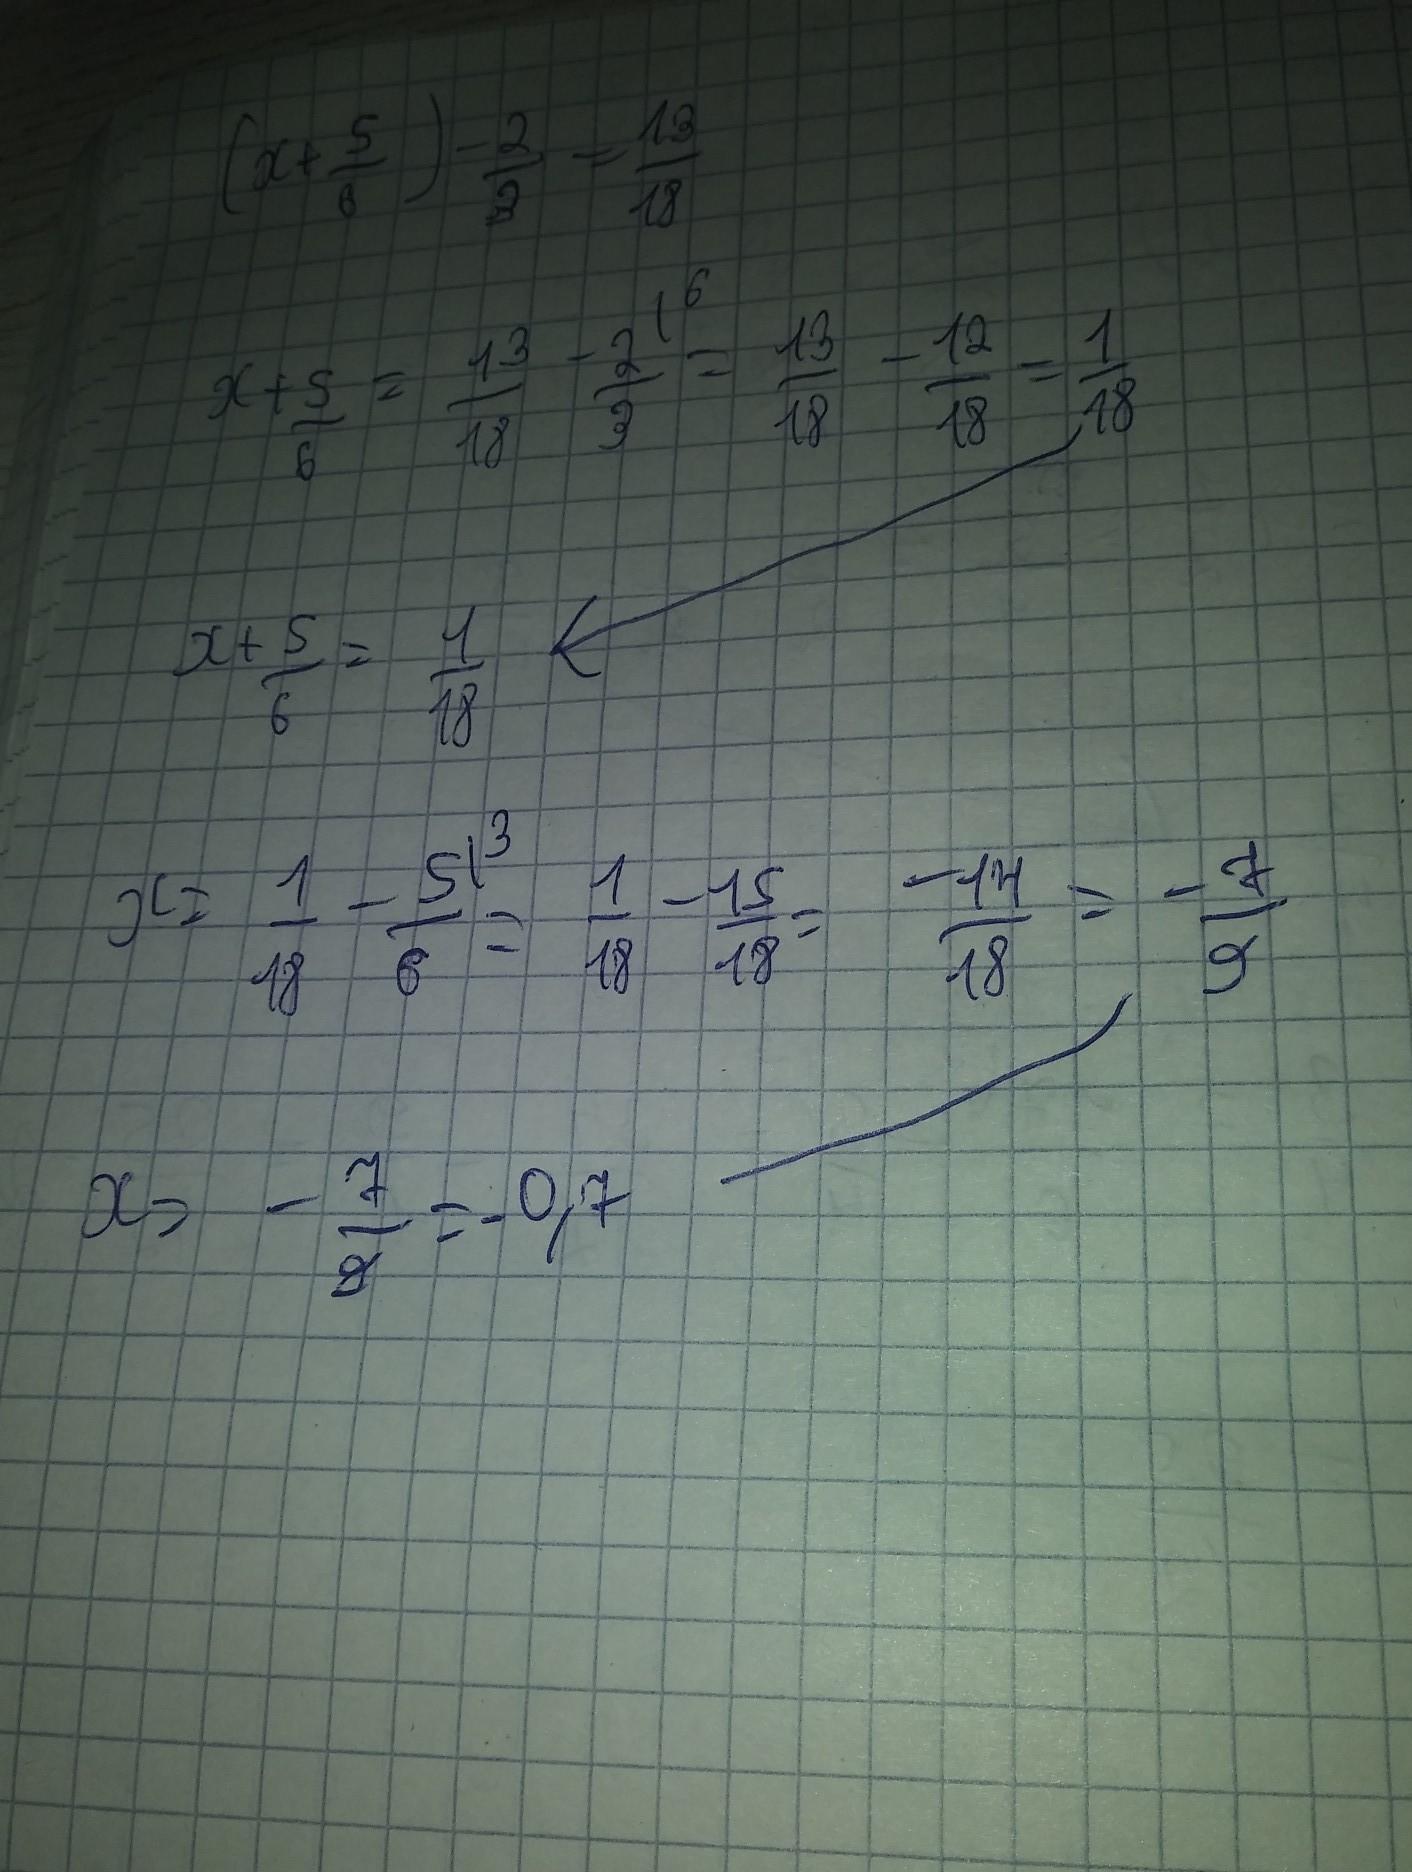 (x + 5/6) - 2/3 = 13/18
x + 5/6 = 13/18 - 2/3 |6 = 13/18 - 12/18 = 1/18
x + 5/6 = 1/18
x = 1/18 - 5/6 |3 = 1/18 - 15/18 = -14/18 = -7/9
x = -7/9 = -0,7